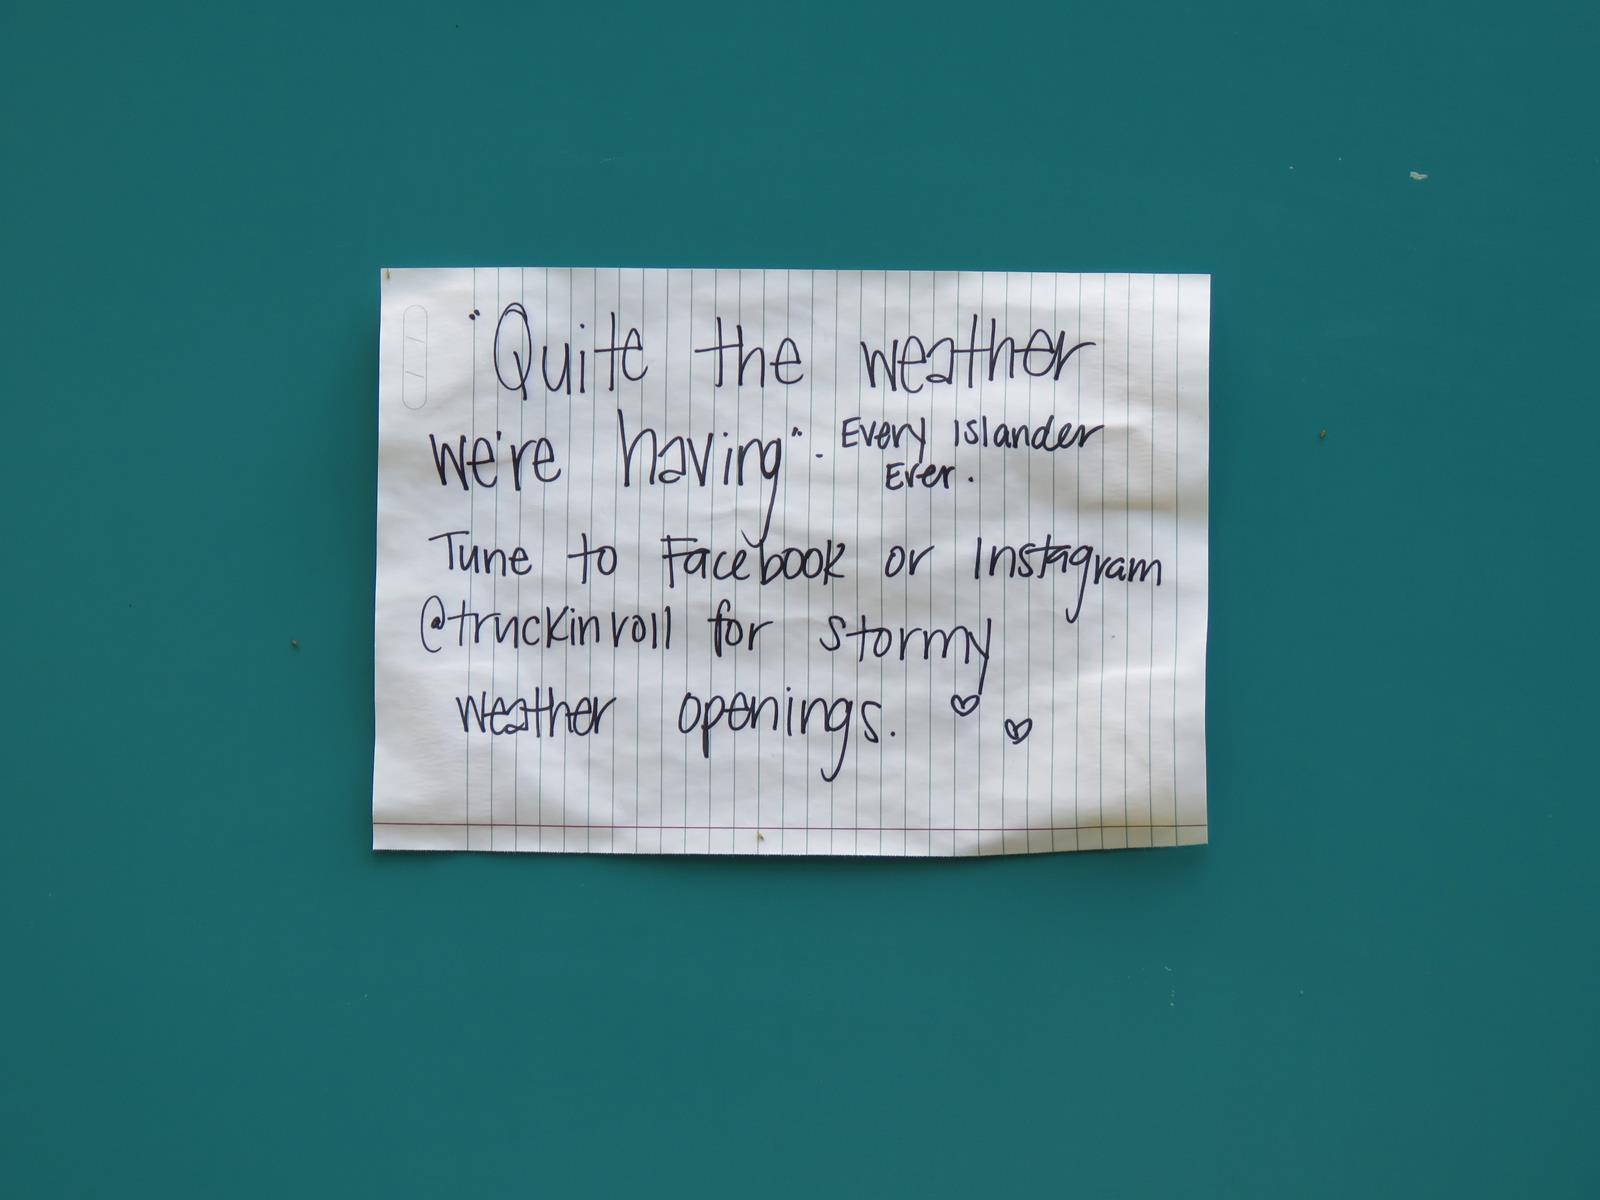 "Quite the weather
we're having". Every islander
Ever.
Tune to Facebook or Instagram
@truckinroll for stormy
weather openings. ♡ ♡